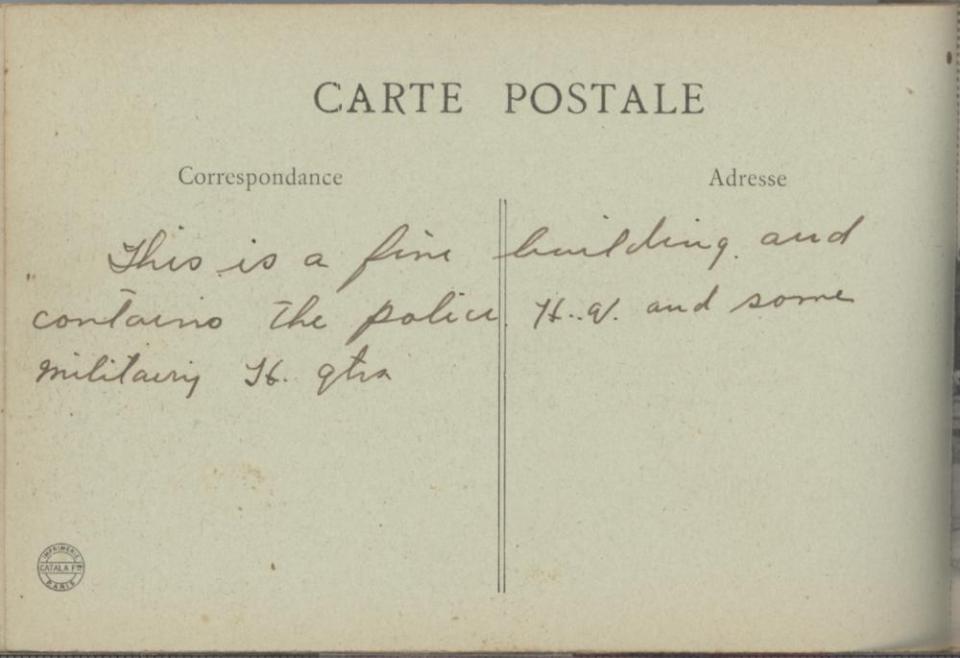 CARTE POSTALE
Correspondance Adresse
This is a fine building and
contains the police H.Q. and some
military H. qtrs
IMPRIMERIE
CATALA Fres
PARIS